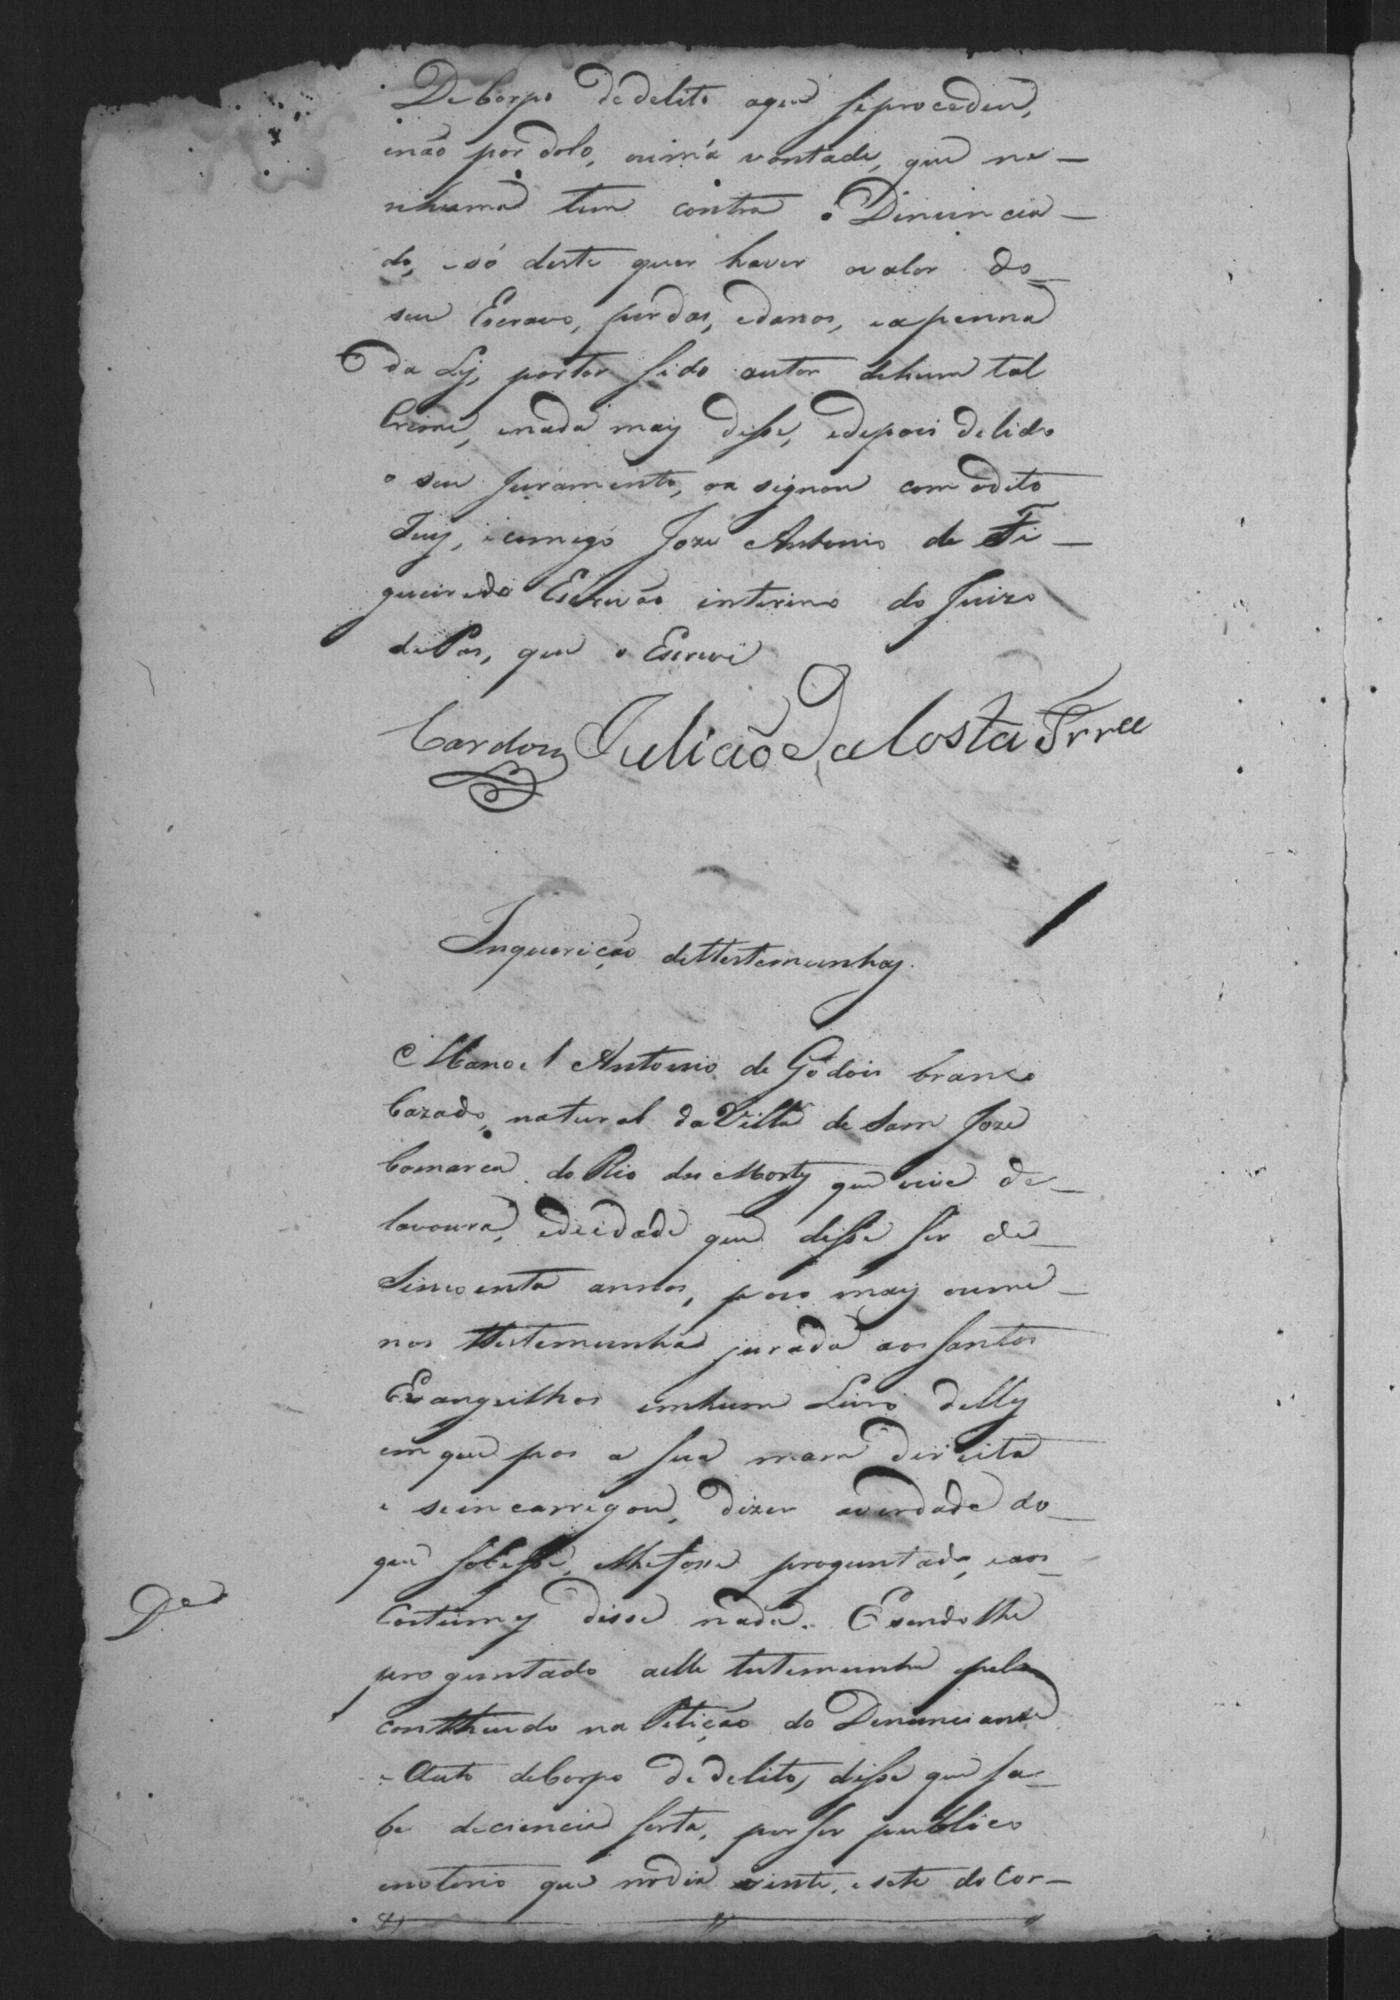 De Corpo de delito aque se procedeu,
enão por dolo, ou má vontade, que ne-
nhuma tem contra o Denuncia-
do, e só deste quer haver o valor do
seu Escravo, perdas, edanos, e a penna
da Ley, porter sido autor dehum tal
Crime, enada mais disse, edepois de lido
o seu juramento, o asignou com odito
Juiz, e comigo Joze Antonio de Fi-
gueiredo Escrivão interino do Juizo
de Pas, que o Escrevi
Cardozo Julião da Costa Frra
Inquerição de Testemunhas.
Manoel Antonio de Godois branco
Cazado, natural da Villa de Sam Joze
Comarca do Rio das Mortes que vive de
lavoura, e de idade que disse ser de
sincoenta annos, pouco mais oume-
nos Testemunha jurada aos Santos
Evangelhos emhum Livro delles
em que pos a sua mam direita
e se incarregou, dizer averdade do
que sobesse, elhe fosse proguntado, e aos
Costumes disse nada. E sendo lhe
proguntado aelle testemunha pelo
conthiudo na Petição do Denunciante
e Auto de Corpo de delito, disse que sa-
be deciencia serta, por ser publico
enotorio que no dia vinte, e sete do Cor-
De